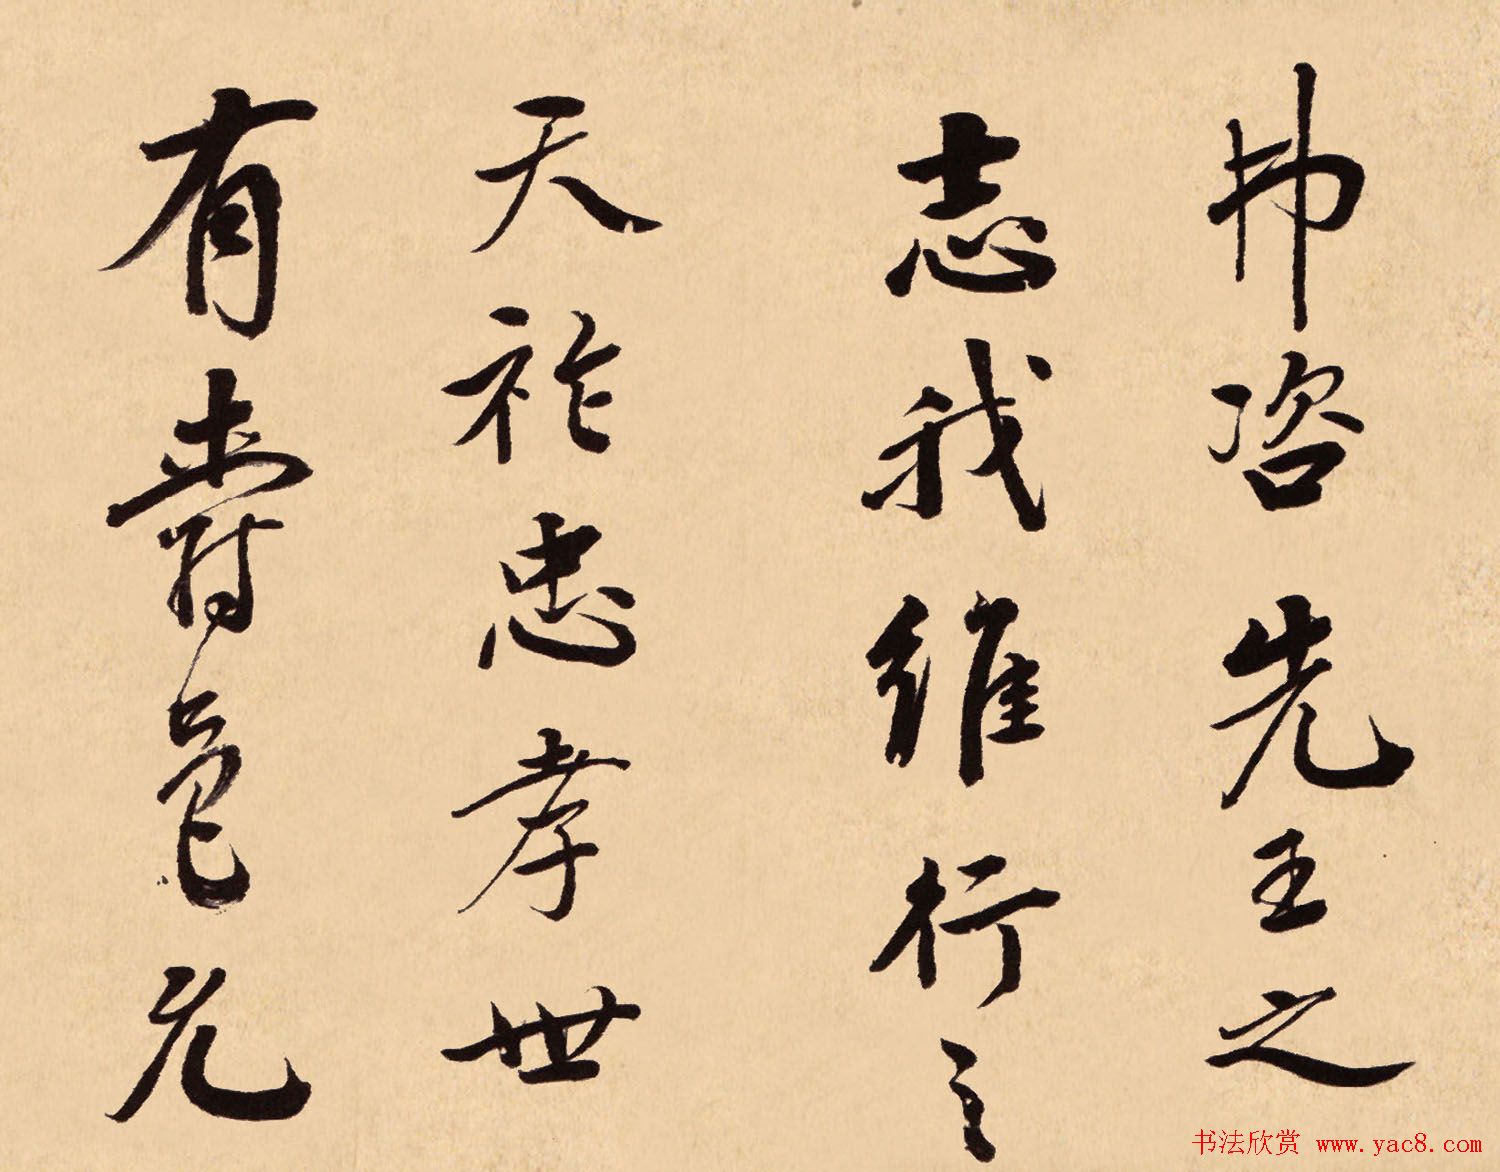 弗咨先王之
志我維行之
天祚忠孝世
有爵邑允
书法欣赏 www.yac8.com